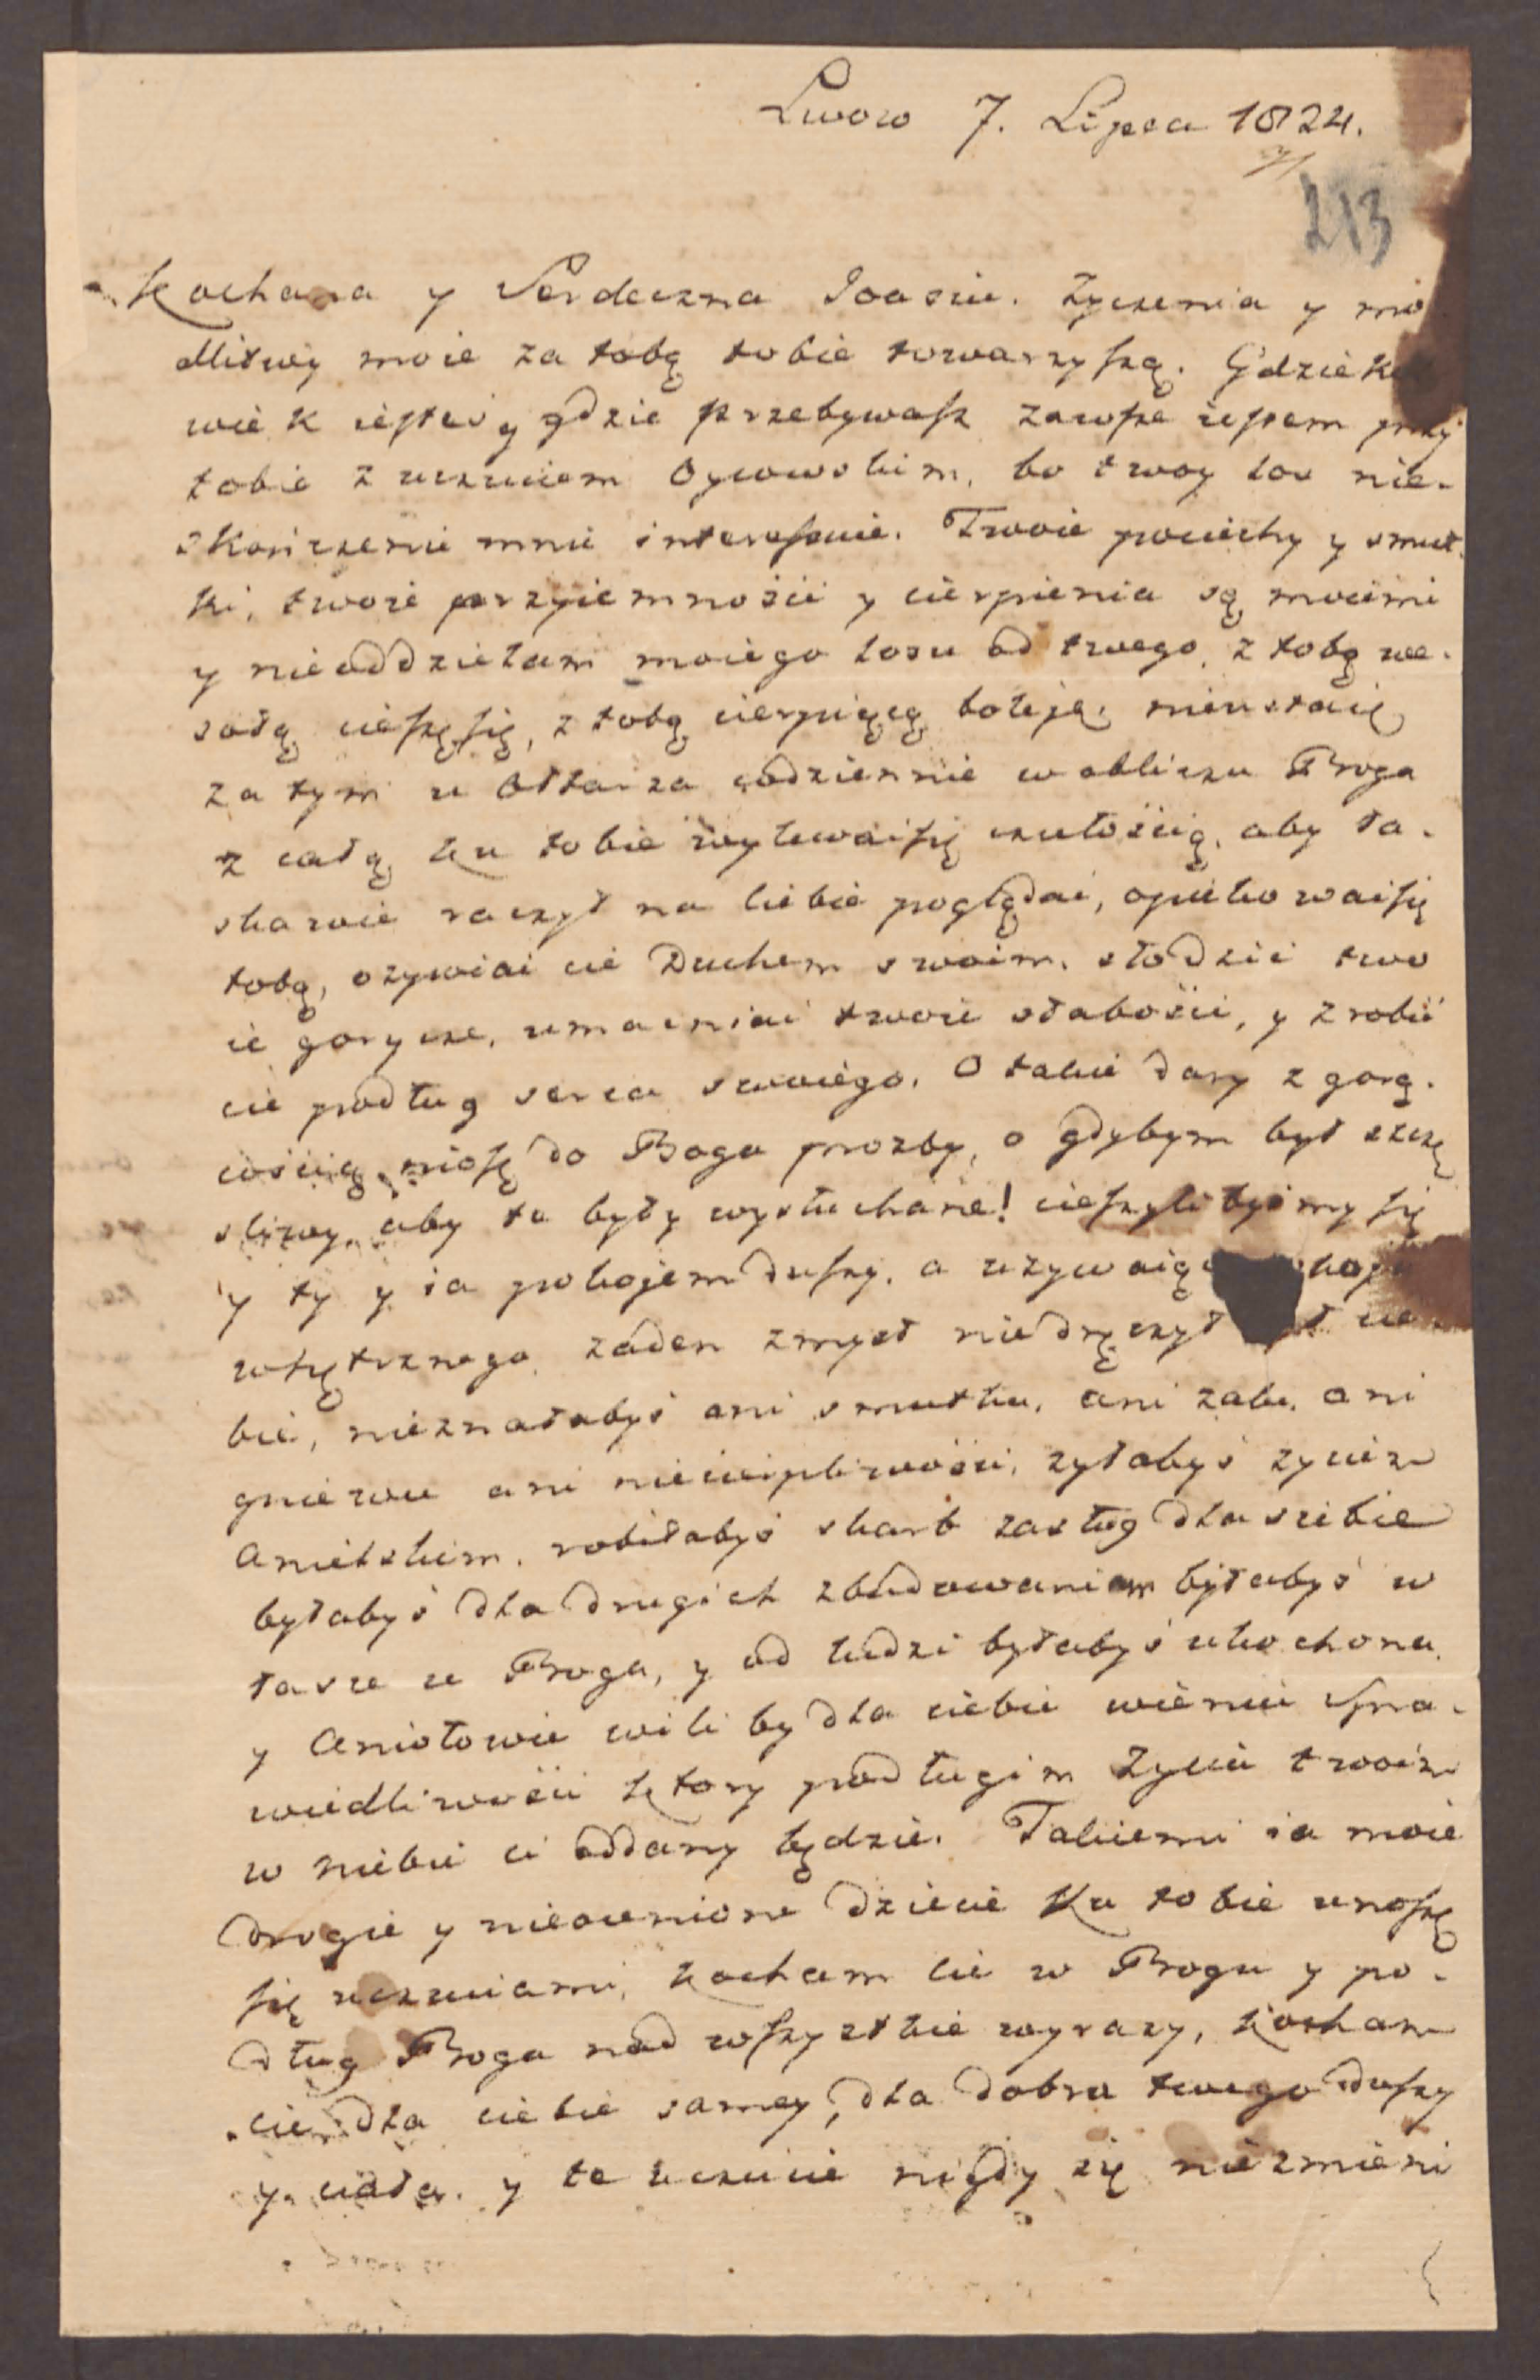 Lwow 7. Lipca 1824.
213
Kochana y Serdeczna Joasiu. Zyczenia y mo
dlitwy moie za tobą tobie towarzyszą. Gdziekol
wiek iesteś y gdzie przebywasz zawsze iestem przy
tobie z uczuciem Oycowskim, bo twoy los nie-
skończenie mnie interessuie. Twoie pociechy y smut-
ki, twoie przyiemności y cierpienia są moiemi
y nieoddzielam moiego losu od twego, z tobą we-
sołą cieszę się, z tobą cierpiącą boleję; nieustaię
za tym u Ołtarza codziennie w obliczu Boga
z całą ku tobie wylewać się czułością, aby ła-
skawie raczył na Ciebie poglądać, opiekować się
tobą, ozywiać cie Duchem swoim, słodzić two
ie gorycze, umacniać twoie słabości, y zrobić
cie podług serca swoiego. O takie dary z gorą-
cością niosę do Boga prozby, o gdybym był szczę
sliwy, aby te były wysłuchane! cieszyli bysmy się
y ty y ia pokojem duszy, a uzywaiąc
wnętrznego zaden zmysł niedręczył cie-
bie, nieznałabyś ani smutku, ani zalu, ani
gniewu ani niecierpliwości, zyłabyś zyciem
Anielskim, robiłabyś skarb zasług dla siebie
byłabyś dla drugich zbudowaniem byłabyś w
łasce u Boga, y od ludzi byłabyś ukochona,
y Aniołowie wili by dla ciebie wieniec Spra-
wiedliwości ktory po długim zyciu twoim
w niebie ci oddany będzie. Takiemi ia moie
Drogie y nieocenione dziecie ku tobie unoszę
się uczuciami, kocham cie w Bogu y po-
dług Boga nad wszystkie wyrazy, kocham
cie dla ciebie samey, dla dobra twego duszy
y ciała. y te uczucie nigdy się niezmieni